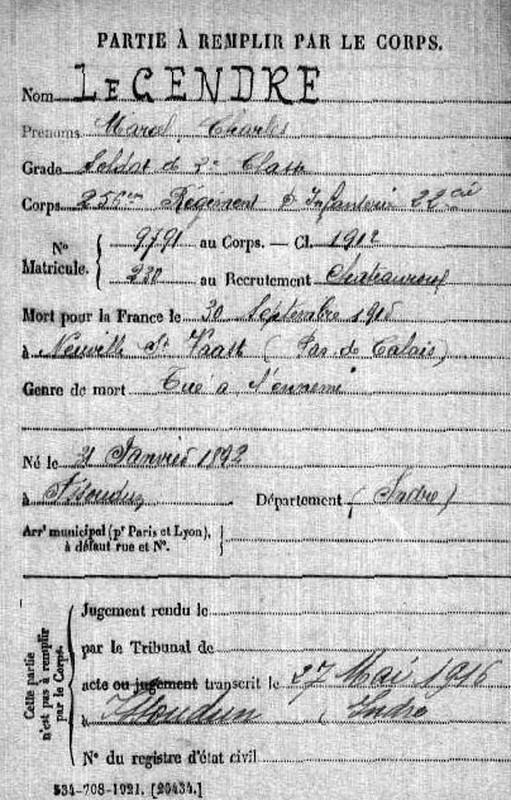 PARTIE À REMPLIR PAR LE CORPS.
Nom LEGENDRE
Prénoms Marcel Charles
Grade Soldat de 2e Classe
Corps 256em Régiment d'Infanterie 22cie
N° Matricule. 9791 au Corps. — Cl. 1912
230 au Recrutement Chateauroux
Mort pour la France le 30 Septembre 1915
à Neuville St Vaast (Pas de Calais)
Genre de mort Tué a l'ennemi
Né le 21 Janvier 1892
à Issoudun Département (Indre)
Arrt municipal (pr Paris et Lyon),
à défaut rue et N°.
Cette partie n'est pas à remplir par le Corps.
Jugement rendu le
par le Tribunal de
acte ou jugement transcrit le 27 Mai 1916
à Issoudun (Indre
N° du registre d'état civil
534-708-1921. [20434.]